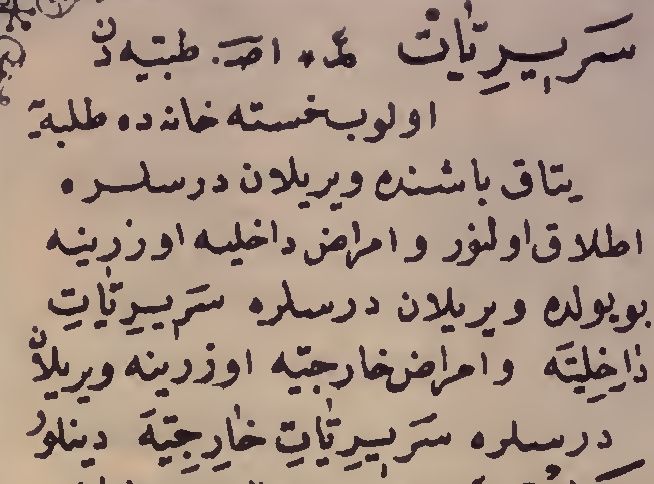 سَرِيرِيَّاتْ عم. اصـ. طبيّه دن
اولوب خسته خانه ده طلبه يه
يتاق باشنده ويريلان درسلره
اطلاق اولنور و امراض داخليه اوزرينه
بو يولده ويريلان درسلره سَرِيرِيَّاتِ
دَاخِلِيَّه و امراض خارجيّه اوزرينه ويريلان
درسلره سَرِيرِيَّاتِ خَارِجِيَّه دينلور